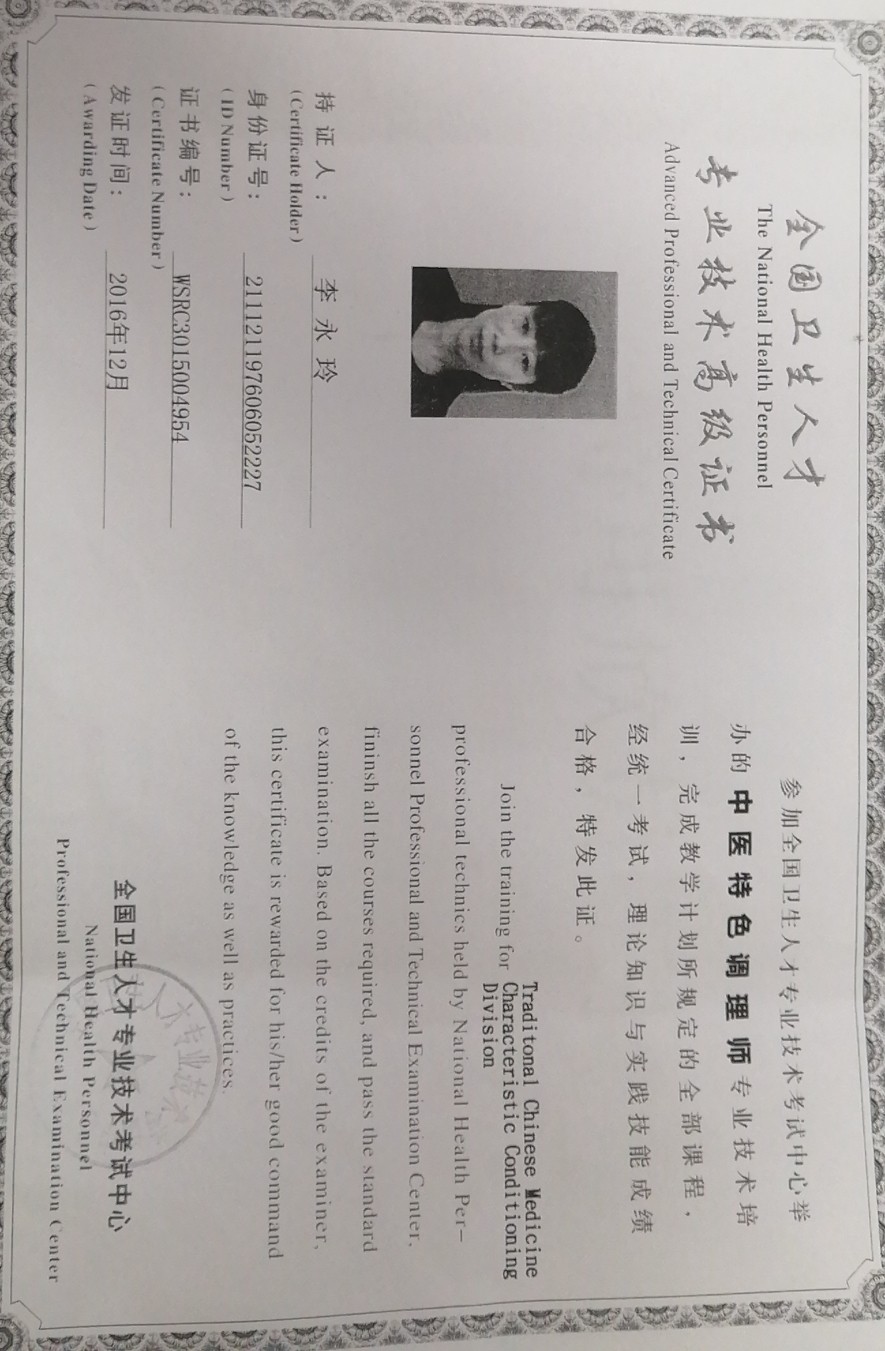 全国卫生人才
The National Health Personnel
专业技术高级证书
Advanced Professional and Technical Certificate
持证人：李永玲
(Certificate Holder)
身份证号：211121197606052227
(ID Number)
证书编号：WSRC3015004954
(Certificate Number)
发证时间：2016年12月
(Awarding Date)
参加全国卫生人才专业技术考试中心举
办的中医特色调理师专业技术培
训，完成教学计划所规定的全部课程，
经统一考试，理论知识与实践技能成绩
合格，特发此证。
Traditonal Chinese Medicine
Join the training for Characteristic Conditioning
Division
professional technics held by National Health Per-
sonnel Professional and Technical Examination Center,
fininsh all the courses required, and pass the standard
examination. Based on the credits of the examiner,
this certificate is rewarded for his/her good command
of the knowledge as well as practices.
全国卫生人才专业技术考试中心
National Health Personnel
Professional and Technical Examination Center
人才专业技术